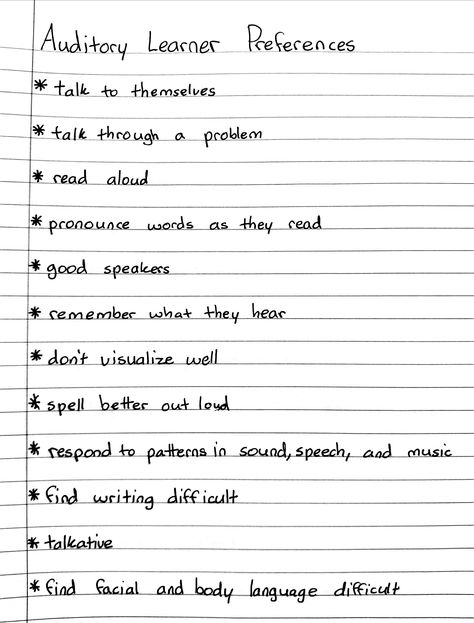 Auditory Learner Preferences
* talk to themselves
* talk through a problem
* read aloud
* pronounce words as they read
* good speakers
* remember what they hear
* don't visualize well
* spell better out loud
* respond to patterns in sound, speech, and music
* find writing difficult
* talkative
* find facial and body language difficult